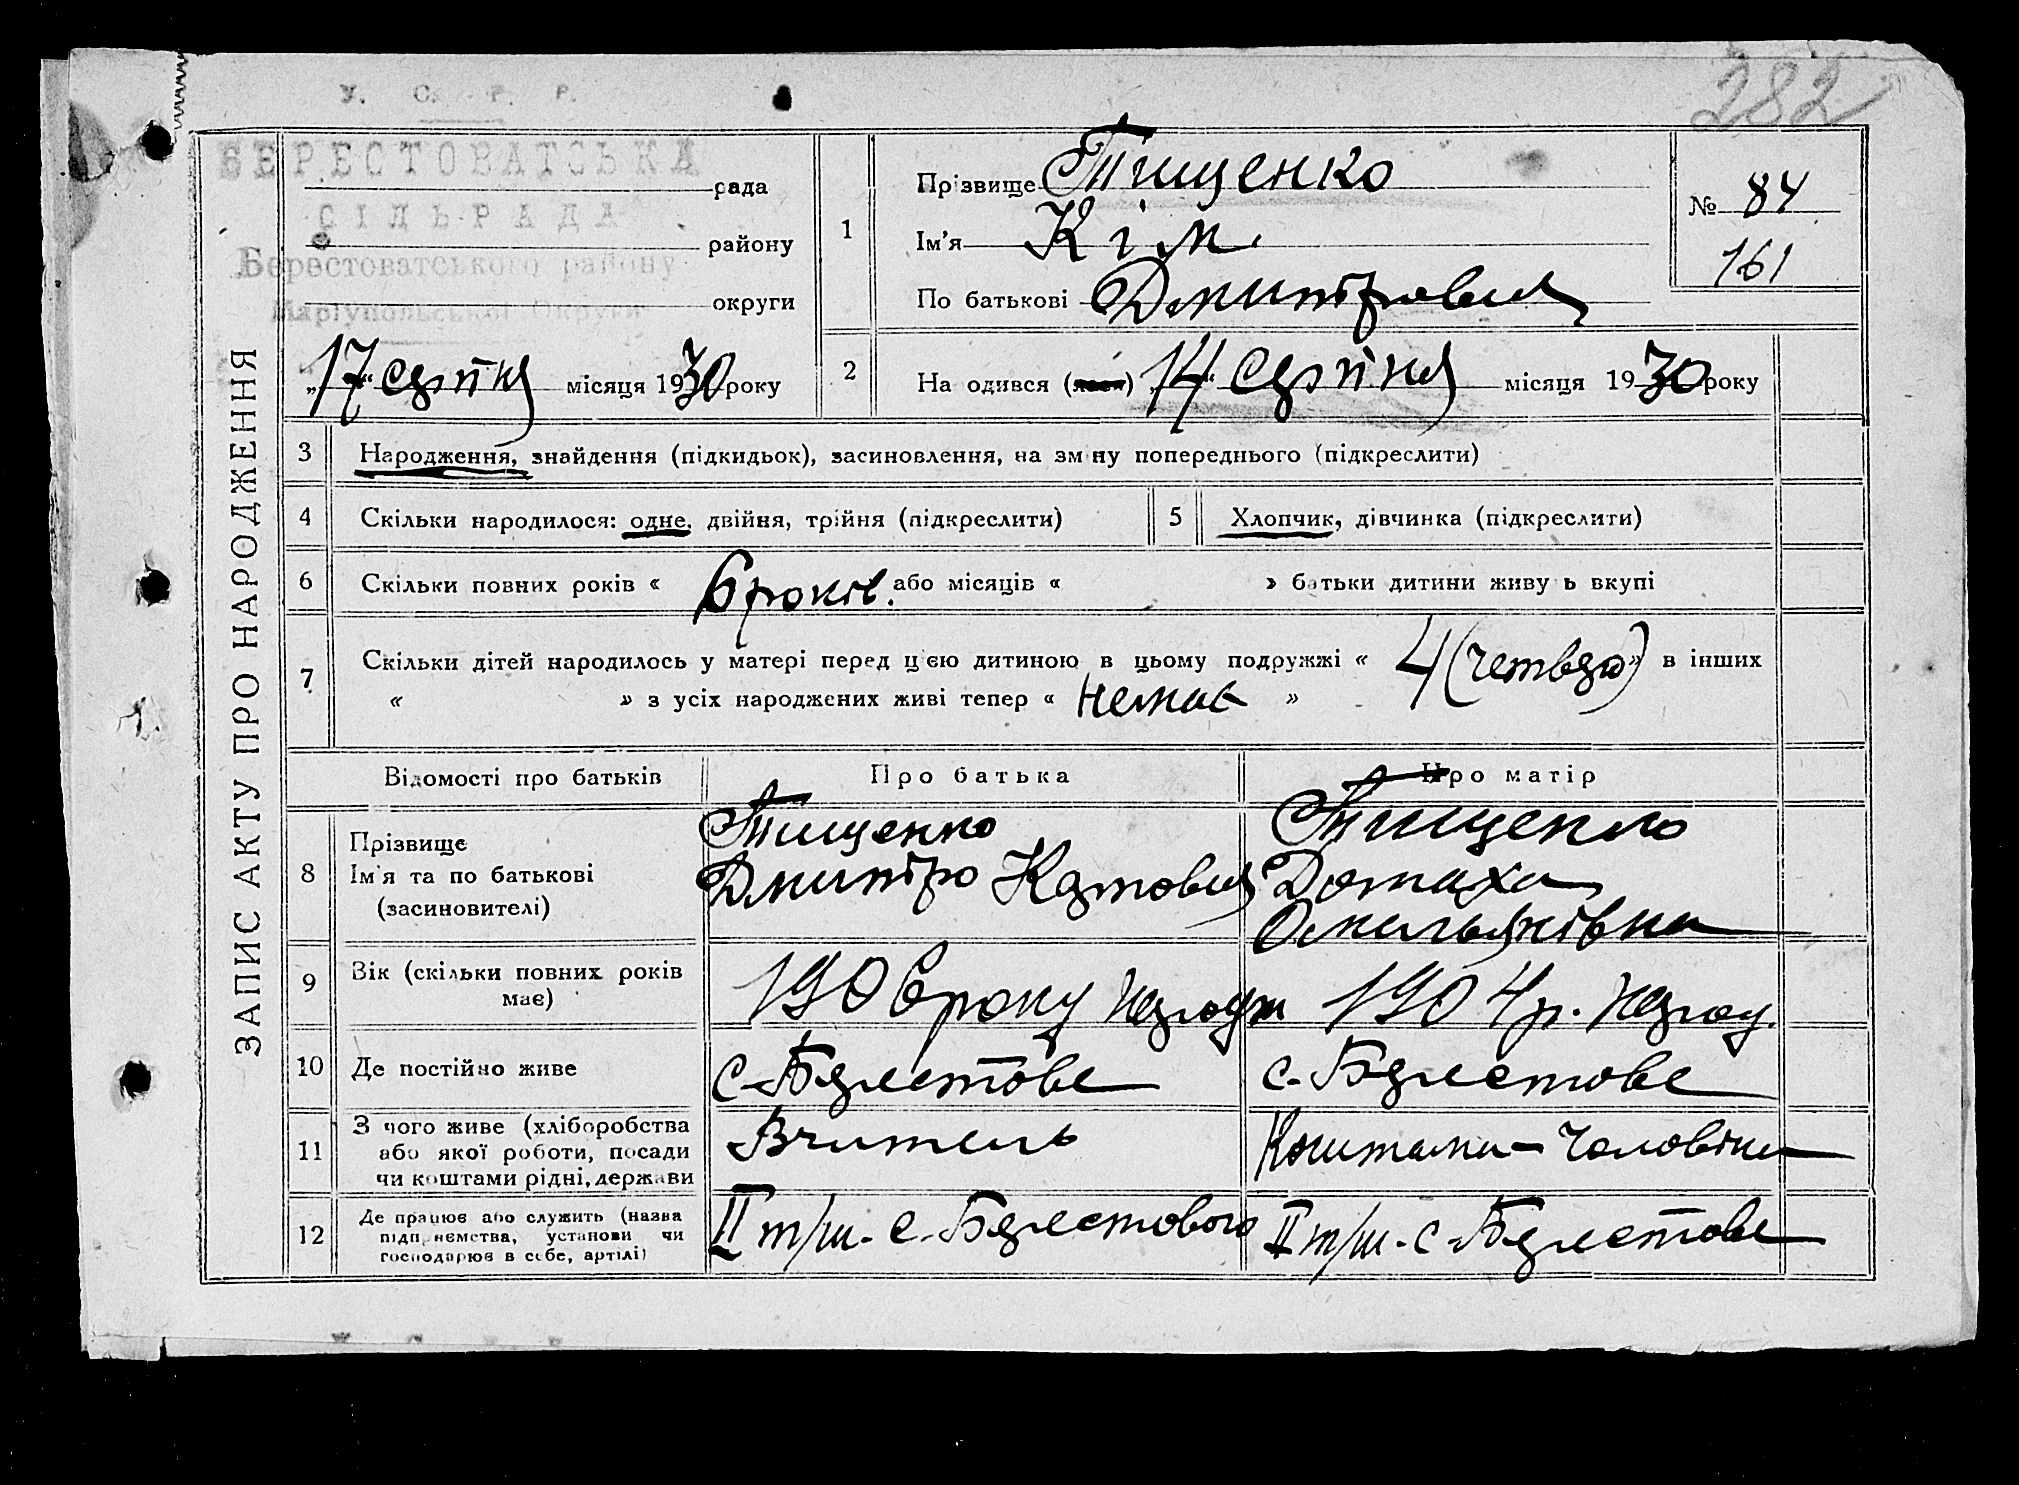 282
У. С. Р. Р.
БЕРЕСТОВАТСЬКА
рада
СІЛЬРАДА
району
Берестоватського району
округи
Маріупольської Округи
„17“ серпня місяця 1930 року
1
Прізвище Тищенко
Ім'я Кім
По батькові Дмитрович
№ 84
161
2
На одився „14“ серпня місяця 1930 року
ЗАПИС АКТУ ПРО НАРОДЖЕННЯ
3 Народження, знайдення (підкидьок), засиновлення, на зміну попереднього (підкреслити)
4 Скільки народилося: одне, двійня, трійня (підкреслити)
5 Хлопчик, дівчинка (підкреслити)
6 Скільки повних років « 6 років. або місяців « » батьки дитини живуть вкупі
7 Скільки дітей народилось у матері перед цією дитиною в цьому подружжі « 4 (четверо) » в інших
« » з усіх народжених живі тепер « немає »
Відомості про батьків Про батька Про матір
8
Прізвище
Ім'я та по батькові
(засиновителі)
Тищенко
Дмитро Карпович
Тищенко
Домаха
Омельянівна
9
Вік (скільки повних років
має)
1906 року народж
1904 р. народ.
10 Де постійно живе
с. Берестове
с. Берестове
11
З чого живе (хліборобства
або якої роботи, посади
чи коштами рідні, держави
Вчитель
Коштами чоловіка
12
Де працює або служить (назва
підприємства, установи чи
господарює в себе, артілі)
ІІ тр/ш. с. Берестового
ІІ тр/ш. с. Берестове